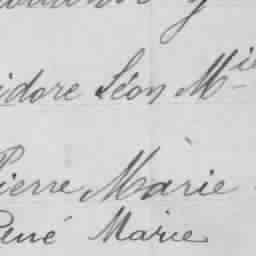 idore Léon Mie
Pierre Marie
René Marie